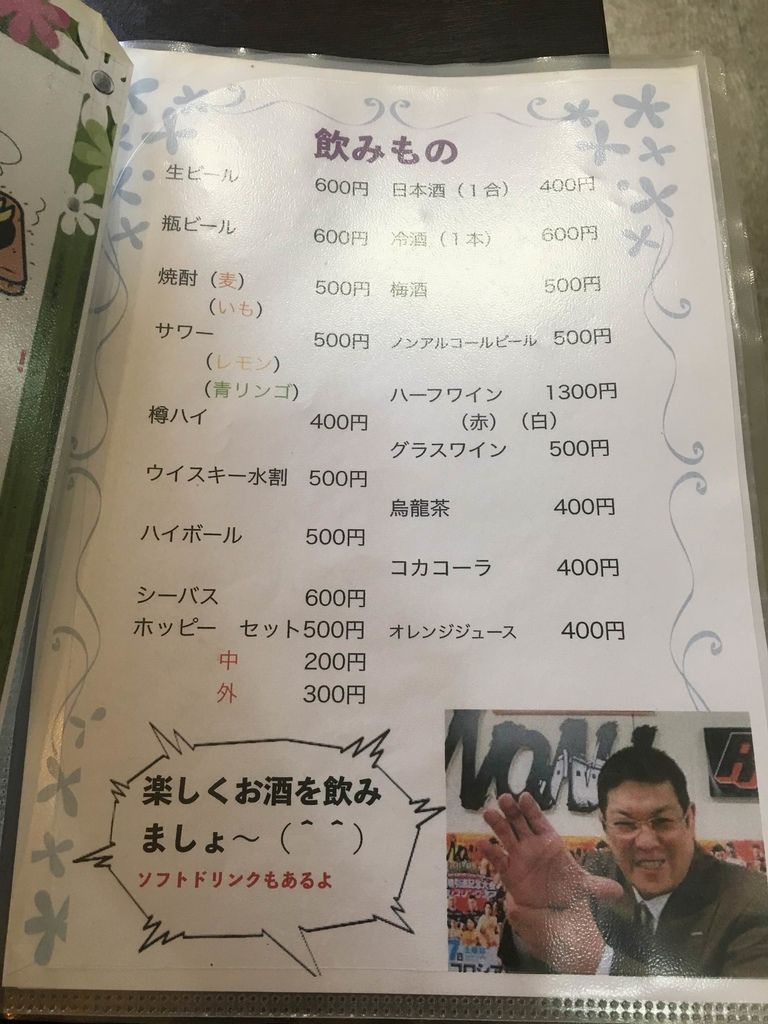 飲みもの
生ビール 600円
瓶ビール 600円
焼酎（麦） 500円
（いも）
サワー 500円
（レモン）
（青リンゴ）
樽ハイ 400円
ウイスキー水割 500円
ハイボール 500円
シーバス 600円
ホッピー セット500円
中 200円
外 300円
日本酒（１合） 400円
冷酒（１本） 600円
梅酒 500円
ノンアルコールビール 500円
ハーフワイン 1300円
（赤）（白）
グラスワイン 500円
烏龍茶 400円
コカコーラ 400円
オレンジジュース 400円
楽しくお酒を飲み
ましょ～（＾＾）
ソフトドリンクもあるよ